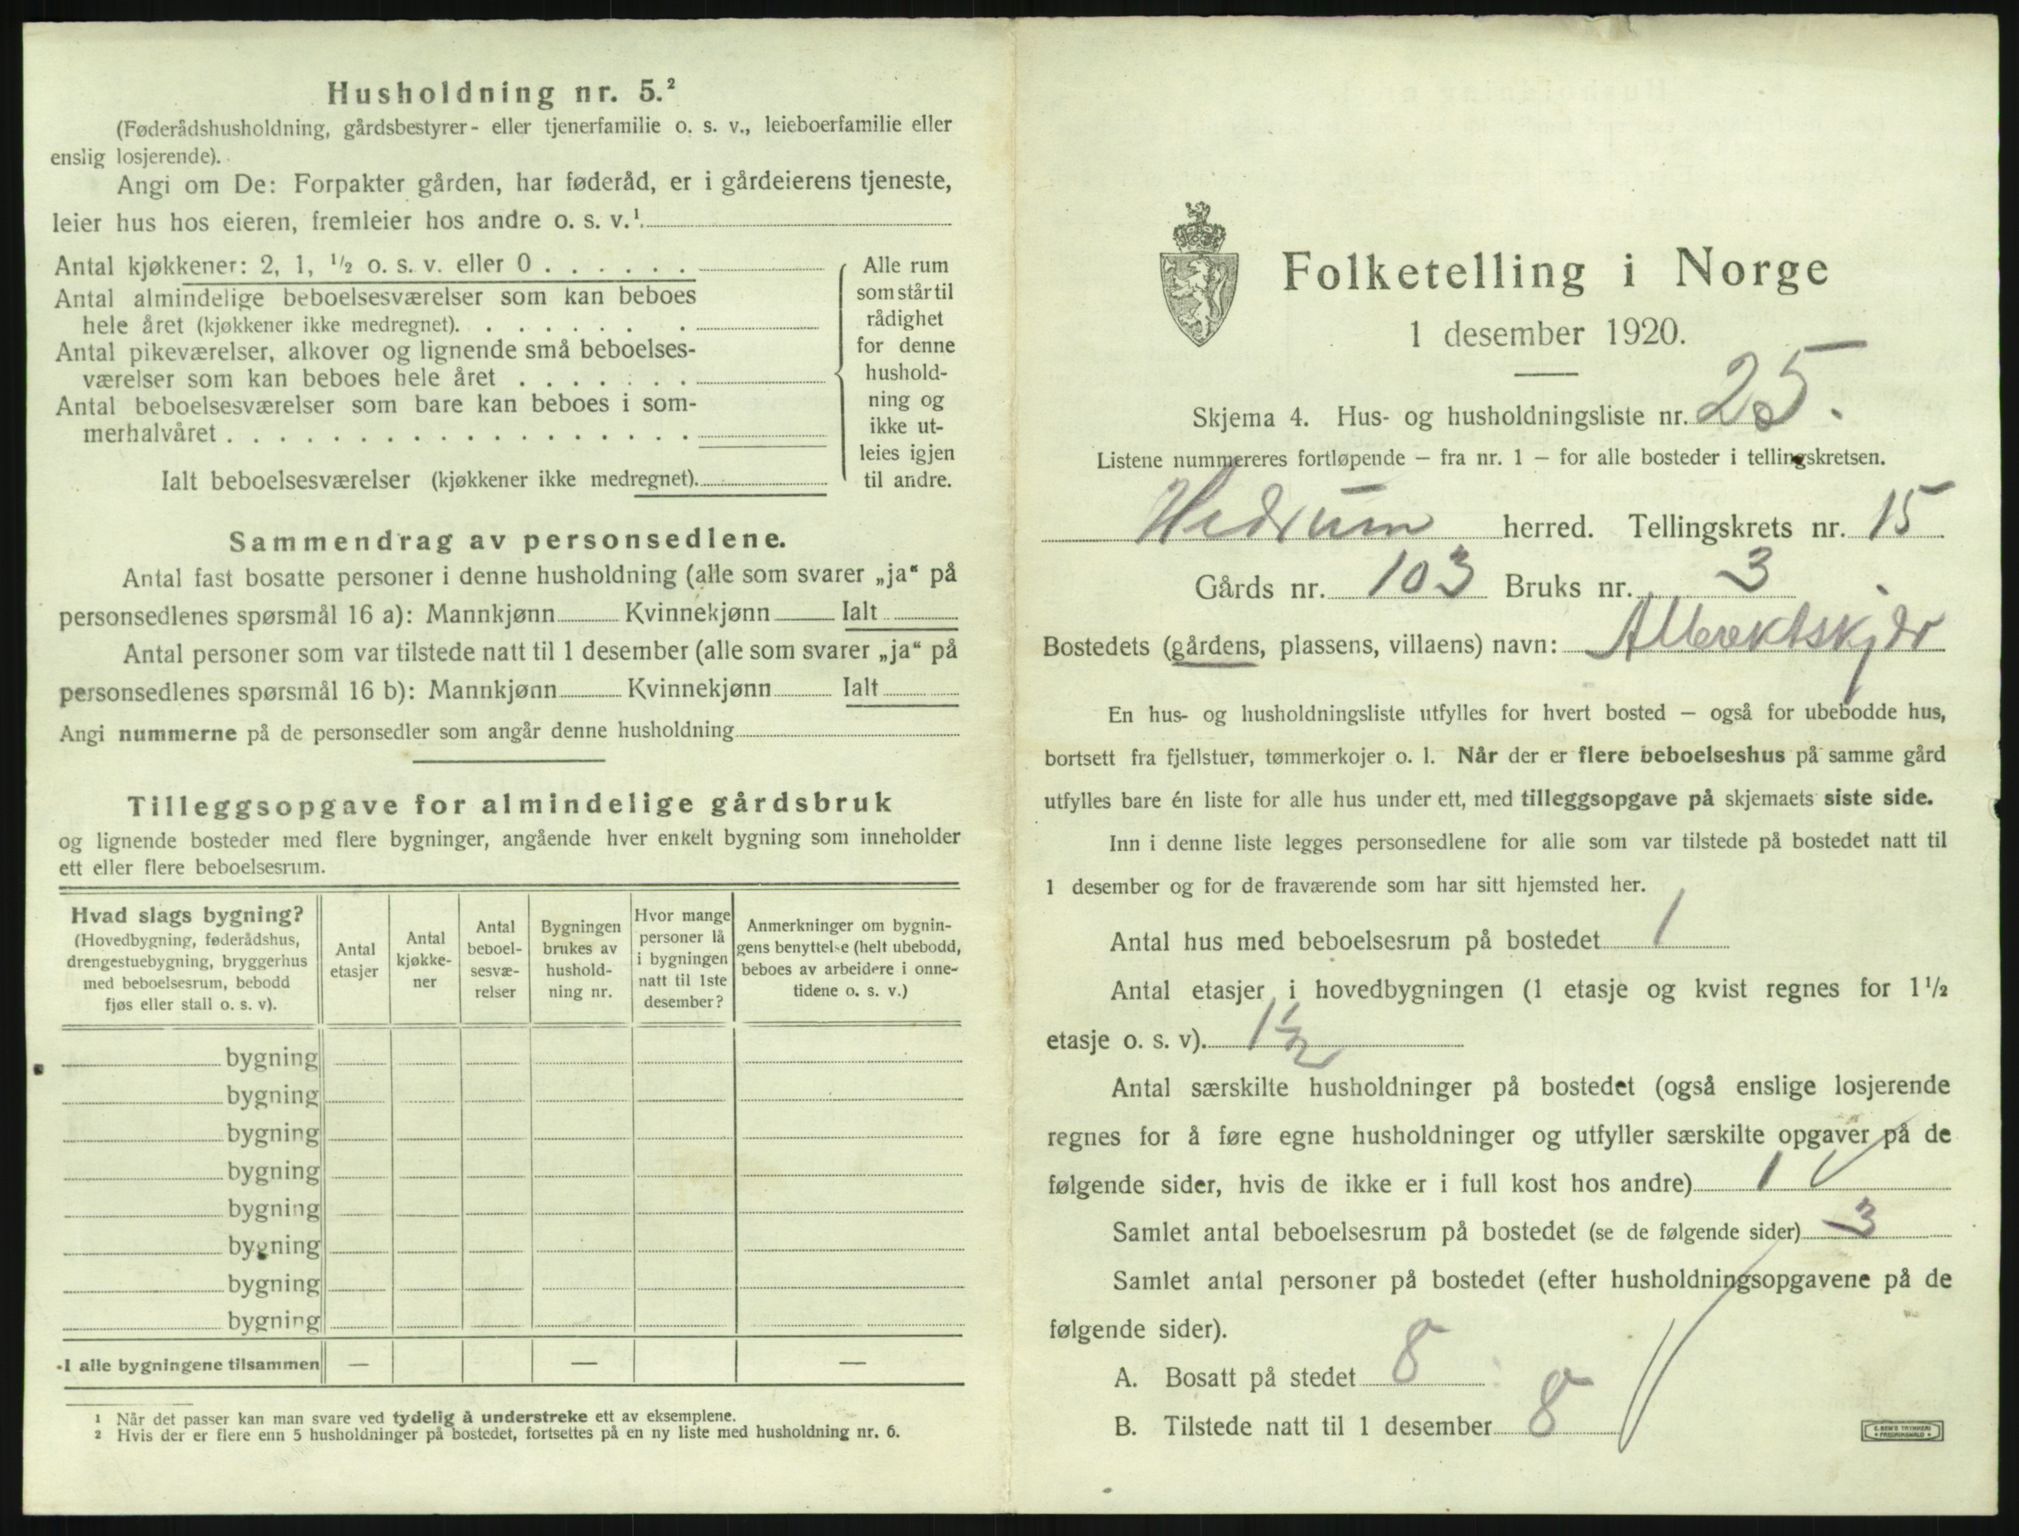 Husholdning nr. 5.²
(Føderådshusholdning, gårdsbestyrer- eller tjenerfamilie o. s. v., leieboerfamilie eller
enslig losjerende).
Angi om De: Forpakter gården, har føderåd, er i gårdeierens tjeneste,
leier hus hos eieren, fremleier hos andre o. s. v.¹
Antal kjøkkener: 2, 1, ½ o. s. v. eller 0 . . . . . .
Antal almindelige beboelsesværelser som kan beboes
hele året (kjøkkener ikke medregnet). . . . . . . .
Antal pikeværelser, alkover og lignende små beboelses-
værelser som kan beboes hele året . . . . . . .
Antal beboelsesværelser som bare kan beboes i som-
merhalvåret . . . . . . . . . . . . . . . . . .
Ialt beboelsesværelser (kjøkkener ikke medregnet).
Alle rum
som står til
rådighet
for denne
hushold-
ning og
ikke ut-
leies igjen
til andre.
Sammendrag av personsedlene.
Antal fast bosatte personer i denne husholdning (alle som svarer „ja“ på
personsedlenes spørsmål 16 a): Mannkjønn Kvinnekjønn Ialt
Antal personer som var tilstede natt til 1 desember (alle som svarer „ja“ på
personsedlenes spørsmål 16 b): Mannkjønn Kvinnekjønn Ialt
Angi nummerne på de personsedler som angår denne husholdning
Tilleggsopgave for almindelige gårdsbruk
og lignende bosteder med flere bygninger, angående hver enkelt bygning som inneholder
ett eller flere beboelsesrum.
Hvad slags bygning?
(Hovedbygning, føderådshus,
drengestuebygning, bryggerhus
med beboelsesrum, bebodd
fjøs eller stall o. s. v).
Antal
etasjer
Antal
kjøkke-
ner
Antal
beboel-
sesvæ-
relser
Bygningen
brukes av
hushold-
ning nr.
Hvor mange
personer lå
i bygningen
natt til 1ste
desember?
Anmerkninger om bygnin-
gens benyttelse (helt ubebodd,
beboes av arbeidere i onne-
tidene o. s. v.)
bygning
bygning
bygning
bygning
bygning
bygning
bygning
bygning
I alle bygningene tilsammen — — —
¹ Når det passer kan man svare ved tydelig å understreke ett av eksemplene.
² Hvis der er flere enn 5 husholdninger på bostedet, fortsettes på en ny liste med husholdning nr. 6.
Folketelling i Norge
1 desember 1920.
Skjema 4. Hus- og husholdningsliste nr. 25.
Listene nummereres fortløpende – fra nr. 1 – for alle bosteder i tellingskretsen.
Hedrum herred. Tellingskrets nr. 15
Gårds nr. 103 Bruks nr. 3
Bostedets (gårdens, plassens, villaens) navn: Albrektskjær
En hus- og husholdningsliste utfylles for hvert bosted – også for ubebodde hus,
bortsett fra fjellstuer, tømmerkojer o. l. Når der er flere beboelseshus på samme gård
utfylles bare én liste for alle hus under ett, med tilleggsopgave på skjemaets siste side.
Inn i denne liste legges personsedlene for alle som var tilstede på bostedet natt til
1 desember og for de fraværende som har sitt hjemsted her.
Antal hus med beboelsesrum på bostedet 1
Antal etasjer i hovedbygningen (1 etasje og kvist regnes for 1½
etasje o. s. v). 1½
Antal særskilte husholdninger på bostedet (også enslige losjerende
regnes for å føre egne husholdninger og utfyller særskilte opgaver på de
følgende sider, hvis de ikke er i full kost hos andre) 1
Samlet antal beboelsesrum på bostedet (se de følgende sider) 3
Samlet antal personer på bostedet (efter husholdningsopgavene på de
følgende sider).
A. Bosatt på stedet 8
B. Tilstede natt til 1 desember 8